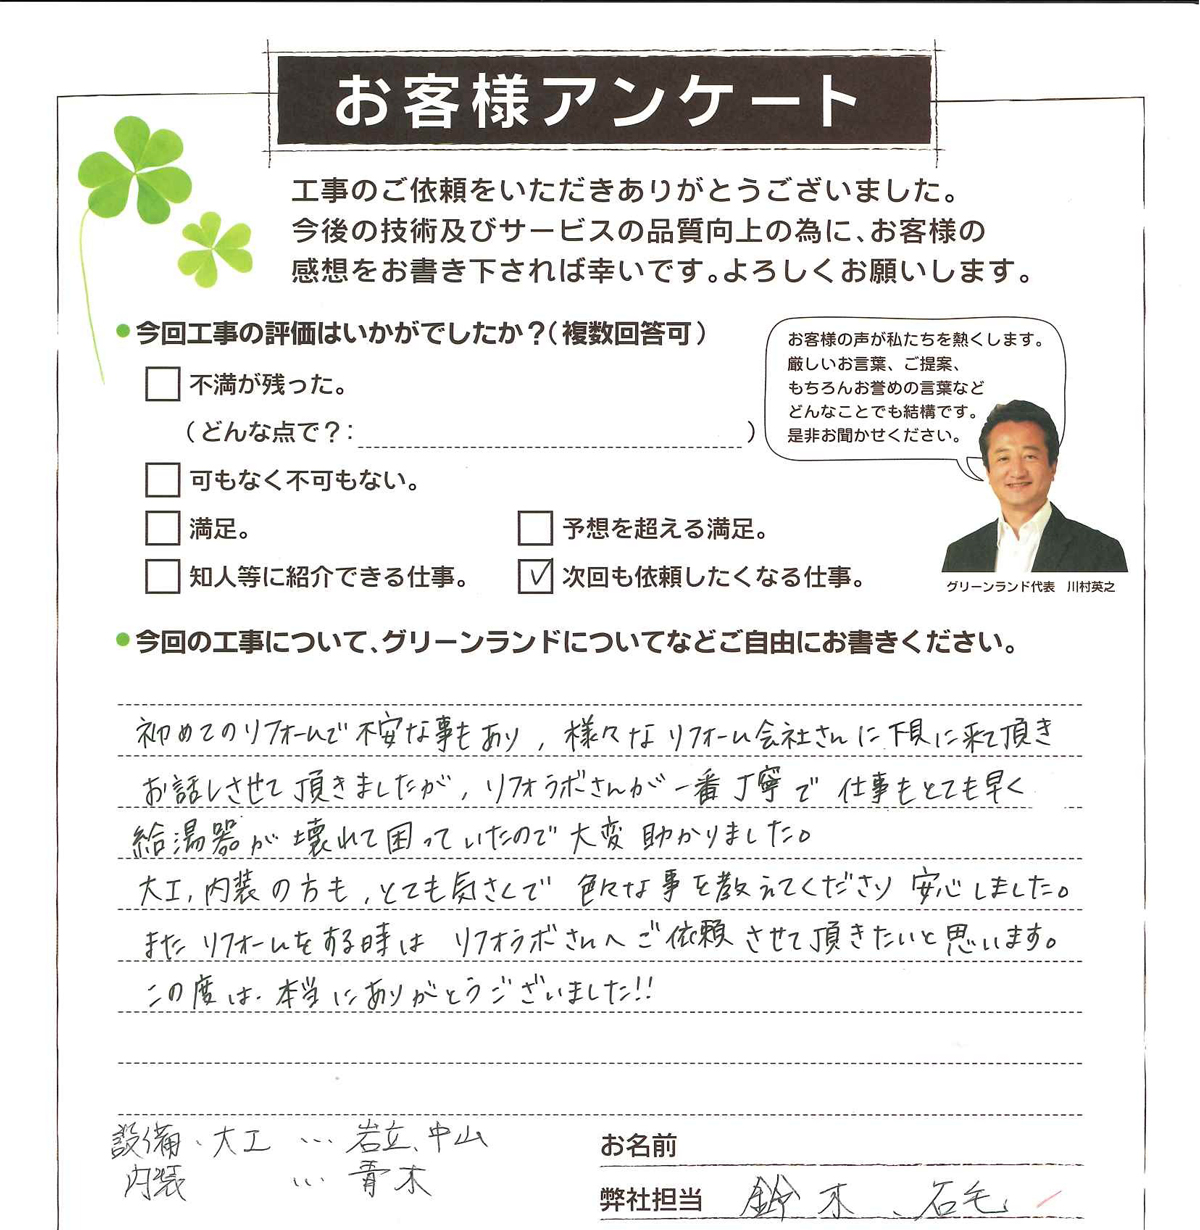 お客様アンケート
工事のご依頼をいただきありがとうございました。
今後の技術及びサービスの品質向上の為に、お客様の
感想をお書き下されば幸いです。よろしくお願いします。
●今回工事の評価はいかがでしたか？（複数回答可）
□ 不満が残った。
（どんな点で？： ）
□ 可もなく不可もない。
□ 満足。
□ 予想を超える満足。
□ 知人等に紹介できる仕事。
☑ 次回も依頼したくなる仕事。
お客様の声が私たちを熱くします。
厳しいお言葉、ご提案、
もちろんお誉めの言葉など
どんなことでも結構です。
是非お聞かせください。
グリーンランド代表　川村英之
●今回の工事について、グリーンランドについてなどご自由にお書きください。
初めてのリフォームで不安な事もあり、様々なリフォーム会社さんに下見に来て頂き
お話しさせて頂きましたが、リフォラボさんが一番丁寧で仕事もとても早く
給湯器が壊れて困っていたので大変助かりました。
大工、内装の方も、とても気さくで色々な事を教えてくださり安心しました。
またリフォームをする時はリフォラボさんへご依頼させて頂きたいと思います。
この度は、本当にありがとうございました!!
設備・大工 … 岩立、中山
内装 … 青木
お名前
弊社担当 鈴木、石毛